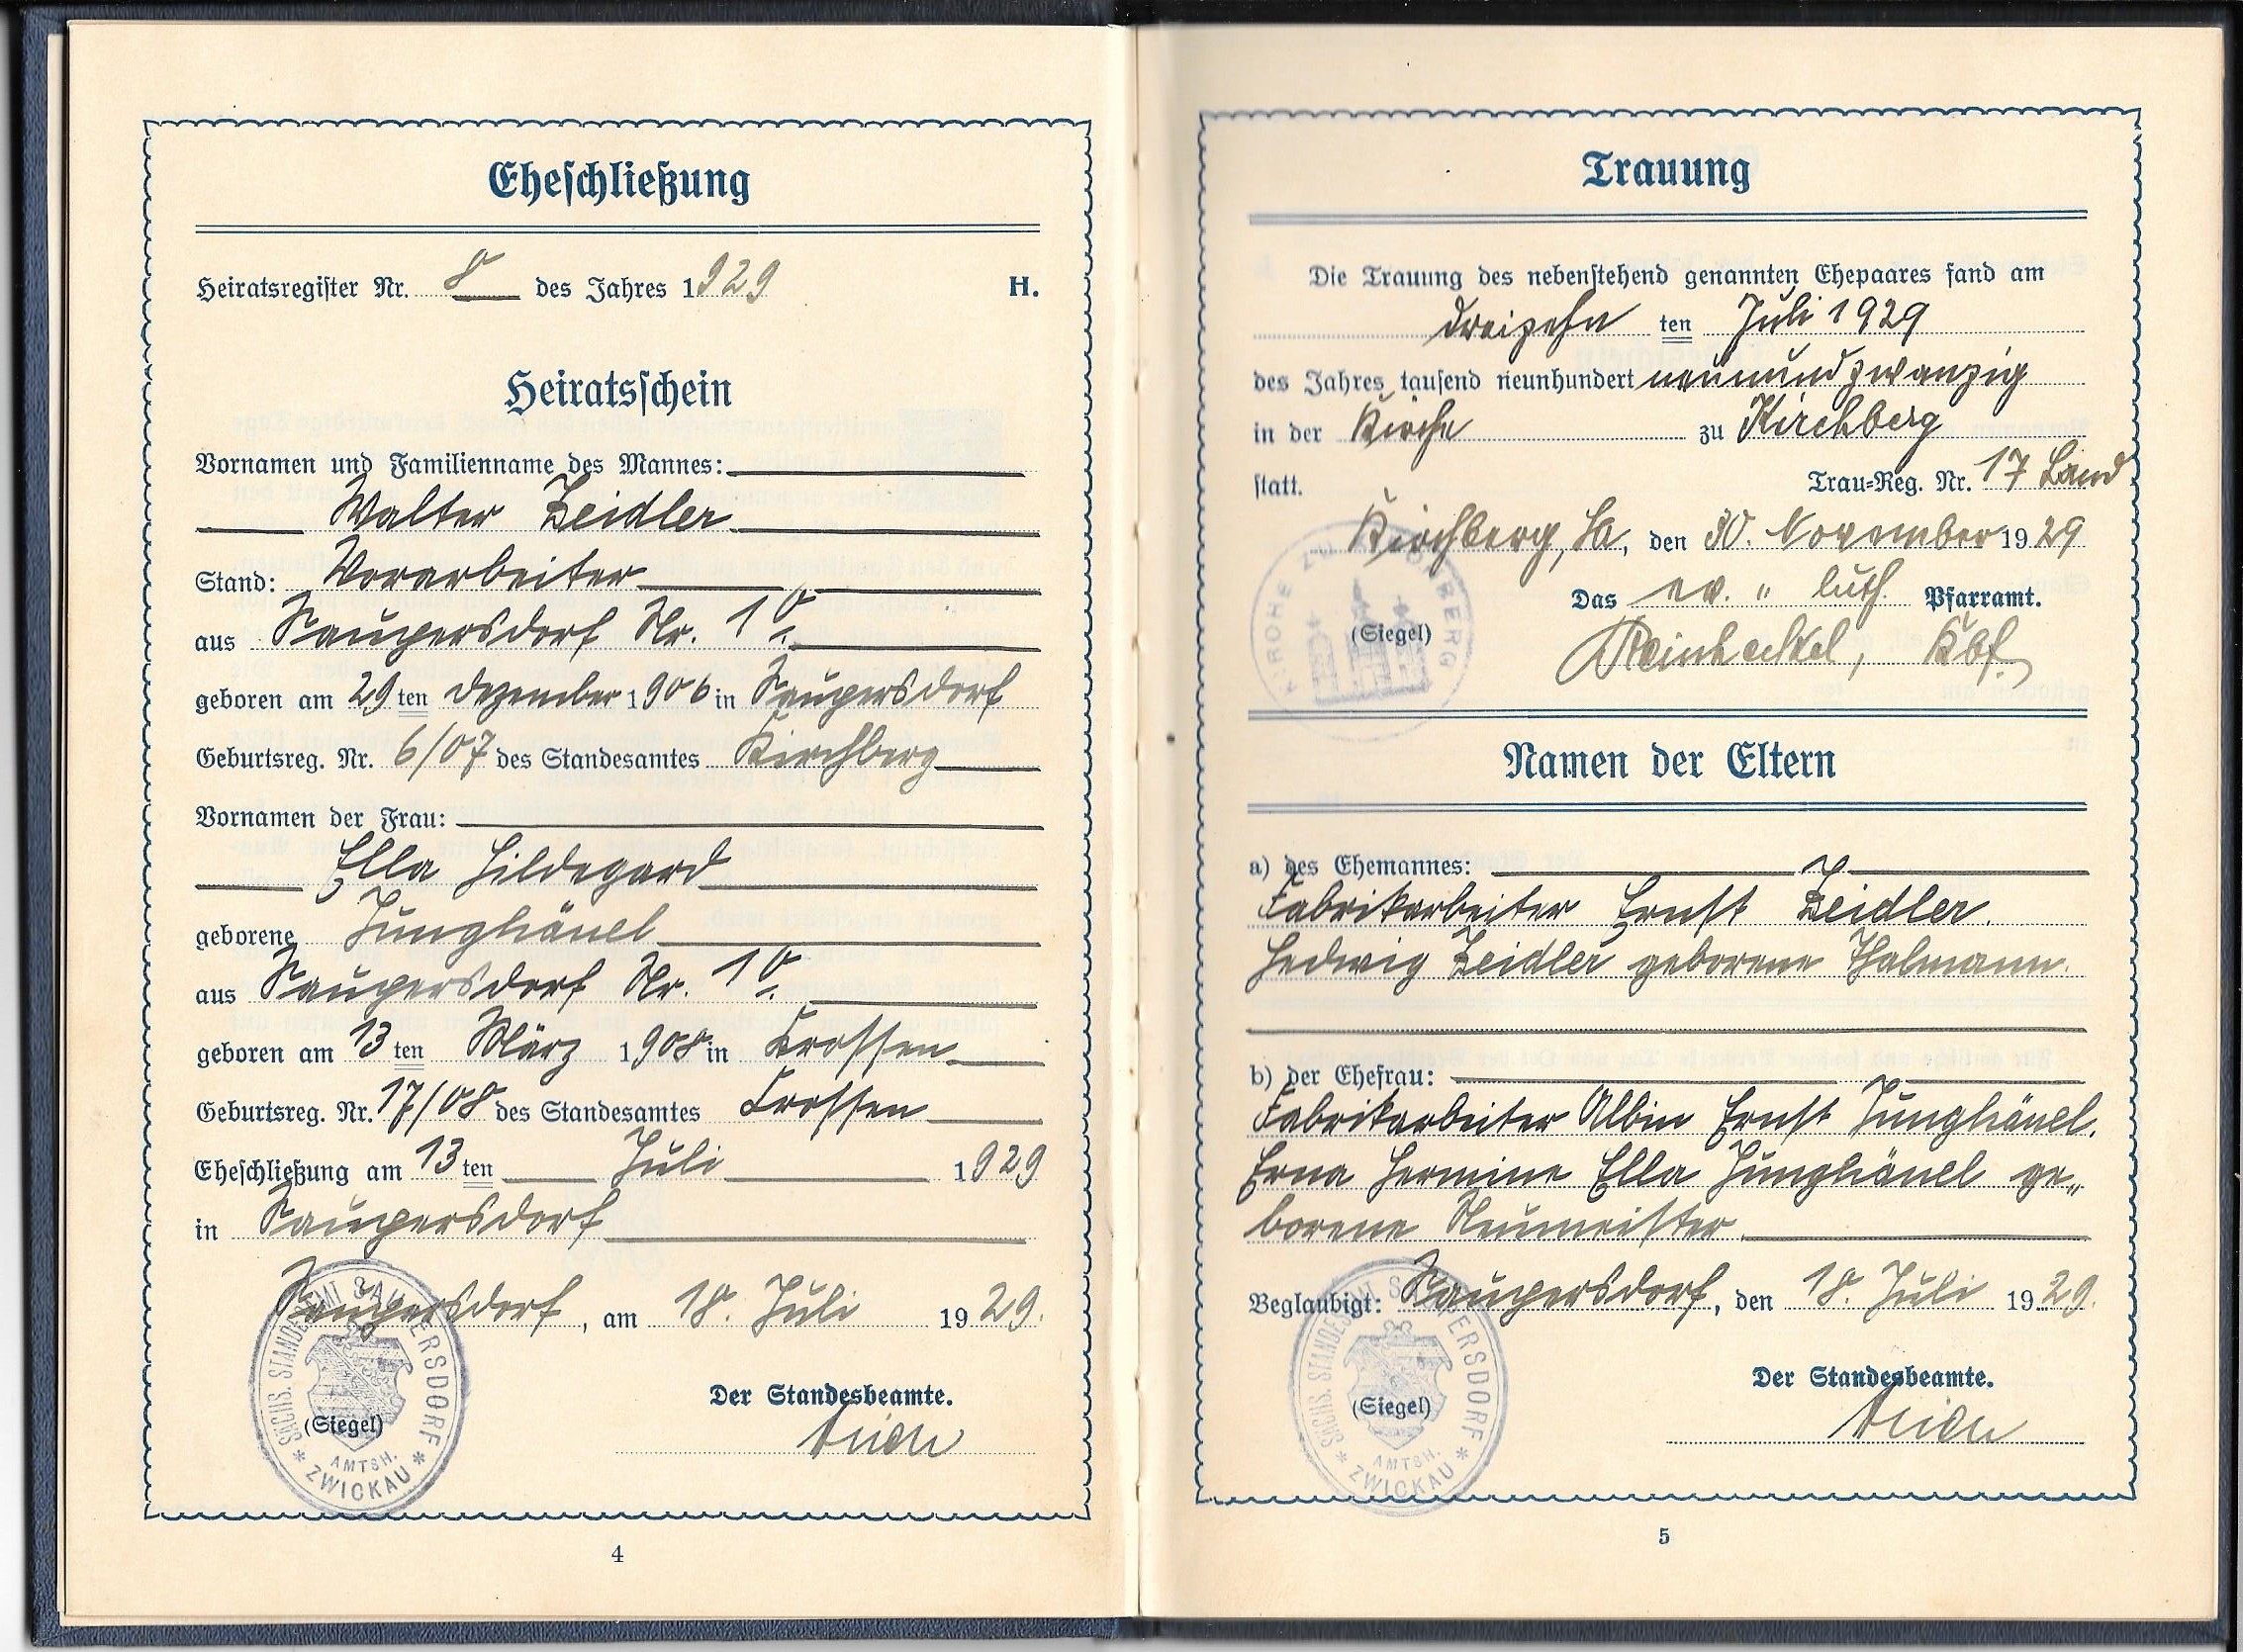 Eheschließung
Heiratsregister Nr. 8 des Jahres 1929 H.
Heiratsschein
Vornamen und Familienname des Mannes:
Walter Zeidler
Stand: Vorarbeiter
aus Saupersdorf Nr. 10.
geboren am 29 ten Dezember 1906 in Saupersdorf
Geburtsreg. Nr. 6/07 des Standesamtes Kirchberg
Vornamen der Frau:
Ella Hildegard
geborene Junghänel
aus Saupersdorf Nr. 10.
geboren am 13 ten März 1908 in Crossen
Geburtsreg. Nr. 17/08 des Standesamtes Crossen
Eheschließung am 13 ten Juli 1929
in Saupersdorf
Saupersdorf, am 18. Juli 1929.
Der Standesbeamte.
(Siegel)
SÄCHS. STANDESAMT SAUPERSDORF
AMTSH.
* ZWICKAU *
4
Trauung
Die Trauung des nebenstehend genannten Ehepaares fand am
dreizehn ten Juli 1929
des Jahres tausend neunhundert neunundzwanzig
in der Kirche zu Kirchberg
statt. Trau-Reg. Nr. 17 Land
Kirchberg, Sa, den 30. November 1929
Das ev. " luth. Pfarramt.
(Siegel)
KIRCHE ZU KIRCHBERG
Namen der Eltern
a) des Ehemannes:
Fabrikarbeiter Ernst Zeidler.
Hedwig Zeidler geborene Thalmann.
b) der Ehefrau:
Fabrikarbeiter Albin Ernst Junghänel.
Erna Hermine Ella Junghänel ge„
borene Neumeister.
Beglaubigt: Saupersdorf, den 18. Juli 1929.
Der Standesbeamte.
(Siegel)
SÄCHS. STANDESAMT SAUPERSDORF
AMTSH.
* ZWICKAU *
5